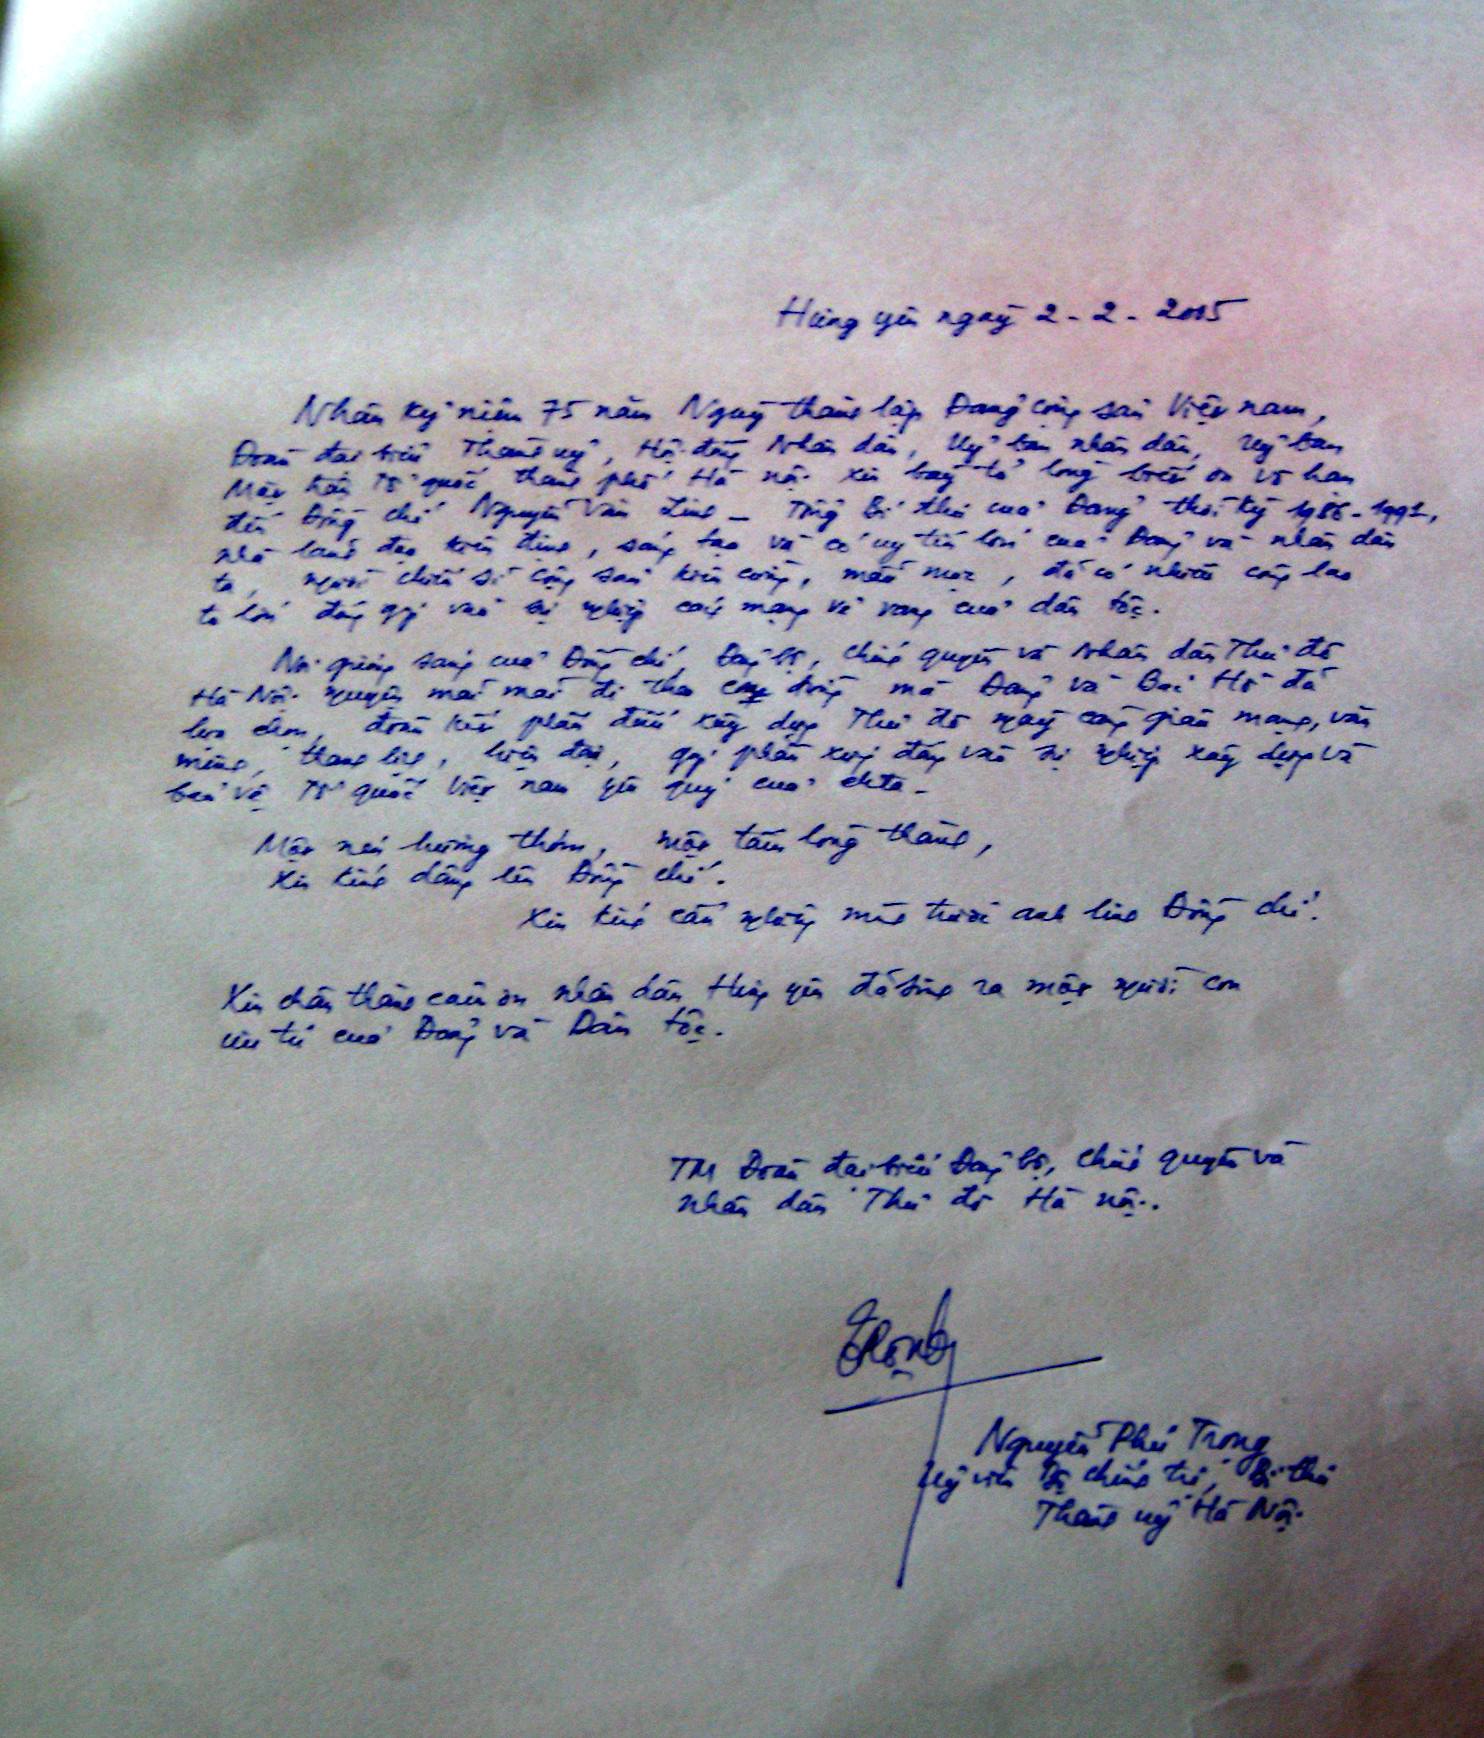 Hưng yên ngày 2-2-2005
Nhân kỷ niệm 75 năm Ngày thành lập Đảng cộng sản Việt nam,
Đoàn đại biểu Thành uỷ, Hội đồng Nhân dân, Uỷ ban nhân dân, Uỷ ban
Mặt trận Tổ quốc thành phố Hà nội xin bày tỏ lòng biết ơn vô hạn
đến Đồng chí Nguyễn Văn Linh – Tổng Bí thư của Đảng thời kỳ 1986-1991,
nhà lãnh đạo kiên định, sáng tạo và có uy tín lớn của Đảng và nhân dân
ta, người chiến sĩ cộng sản kiên cường, mẫu mực, đã có nhiều công lao
to lớn đóng góp vào sự nghiệp cách mạng vẻ vang của dân tộc.
Noi gương sáng của Đồng chí, Đảng bộ, chính quyền và Nhân dân Thủ đô
Hà Nội nguyện mãi mãi đi theo con đường mà Đảng và Bác Hồ đã
lựa chọn, đoàn kết phấn đấu xây dựng Thủ đô ngày càng giàu mạnh, văn
minh, thanh lịch, hiện đại, góp phần xứng đáng vào sự nghiệp xây dựng và
bảo vệ Tổ quốc Việt nam yêu quý của chta.
Một nén hương thơm, một tấm lòng thành,
Xin kính dâng lên Đồng chí.
Xin kính cẩn nghiêng mình trước anh linh Đồng chí.
Xin chân thành cảm ơn nhân dân Hưng yên đã sinh ra một người con
ưu tú của Đảng và Dân tộc.
TM Đoàn đại biểu Đảng bộ, chính quyền và
nhân dân Thủ đô Hà nội.
Trọng
Nguyễn Phú Trọng
Uỷ viên Bộ chính trị, Bí thư
Thành uỷ Hà Nội